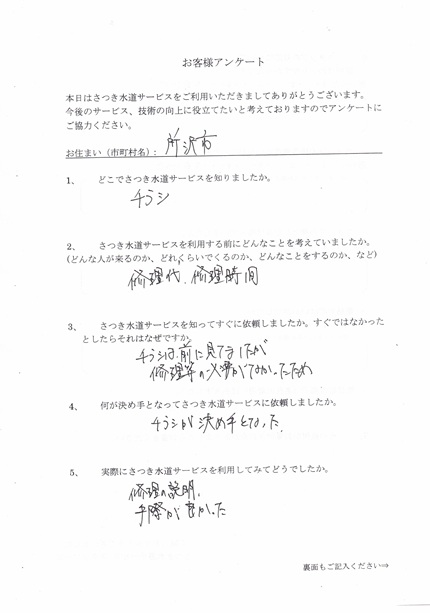 お客様アンケート
本日はさつき水道サービスをご利用いただきましてありがとうございます。
今後のサービス、技術の向上に役立てたいと考えておりますのでアンケートに
ご協力ください。
お住まい（市町村名）: 所沢市
1、 どこでさつき水道サービスを知りましたか。
チラシ
2、 さつき水道サービスを利用する前にどんなことを考えていましたか。
(どんな人が来るのか、どれくらいでくるのか、どんなことをするのか、など)
修理代、修理時間
3、 さつき水道サービスを知ってすぐに依頼しましたか。すぐではなかった
としたらそれはなぜですか。
チラシは前に見てましたが
修理等の必要がなかったため
4、 何が決め手となってさつき水道サービスに依頼しましたか。
チラシが決め手となった。
5、 実際にさつき水道サービスを利用してみてどうでしたか。
修理の説明、
手際が良かった
裏面もご記入ください⇒